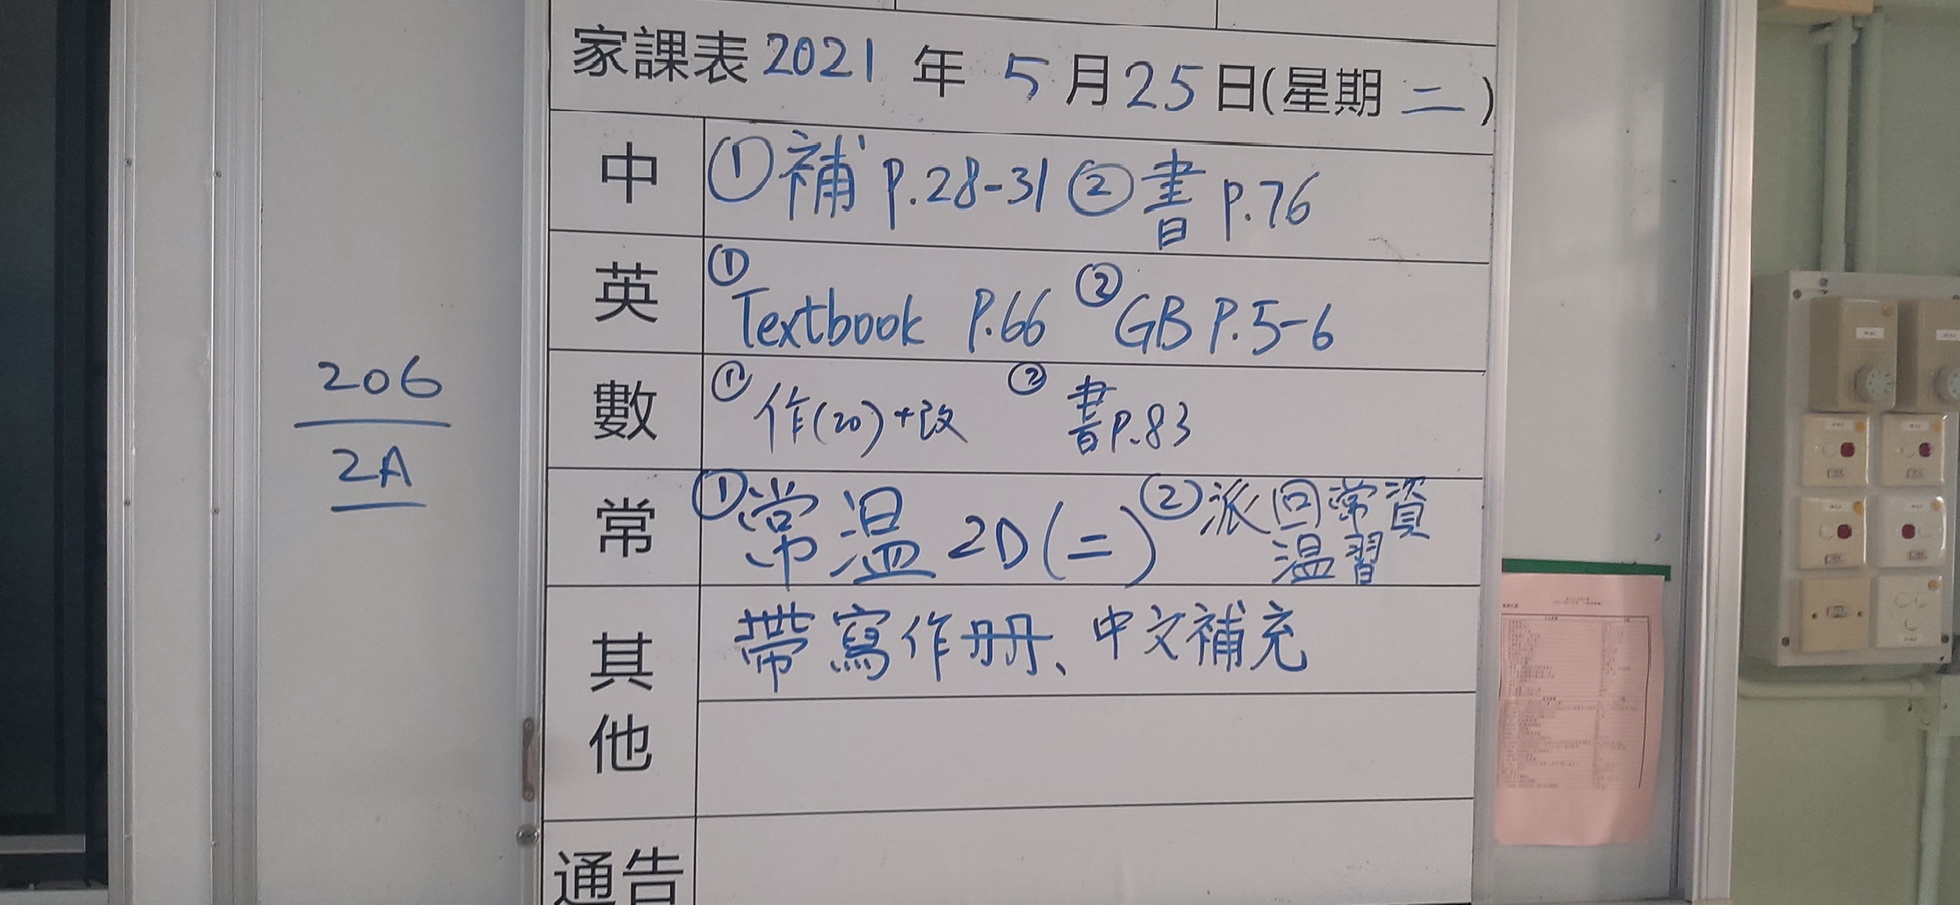 家課表 2021 年 5 月 25 日(星期 二)
中 ①補 P.28-31 ②書 P.76
英 ①Textbook P.66 ②GB P.5-6
數 ①作(20)+改 ②書P.83
常 ①常温 2D(二) ②派回常資
温習
其他 帶寫作冊、中文補充
通告
206
2A